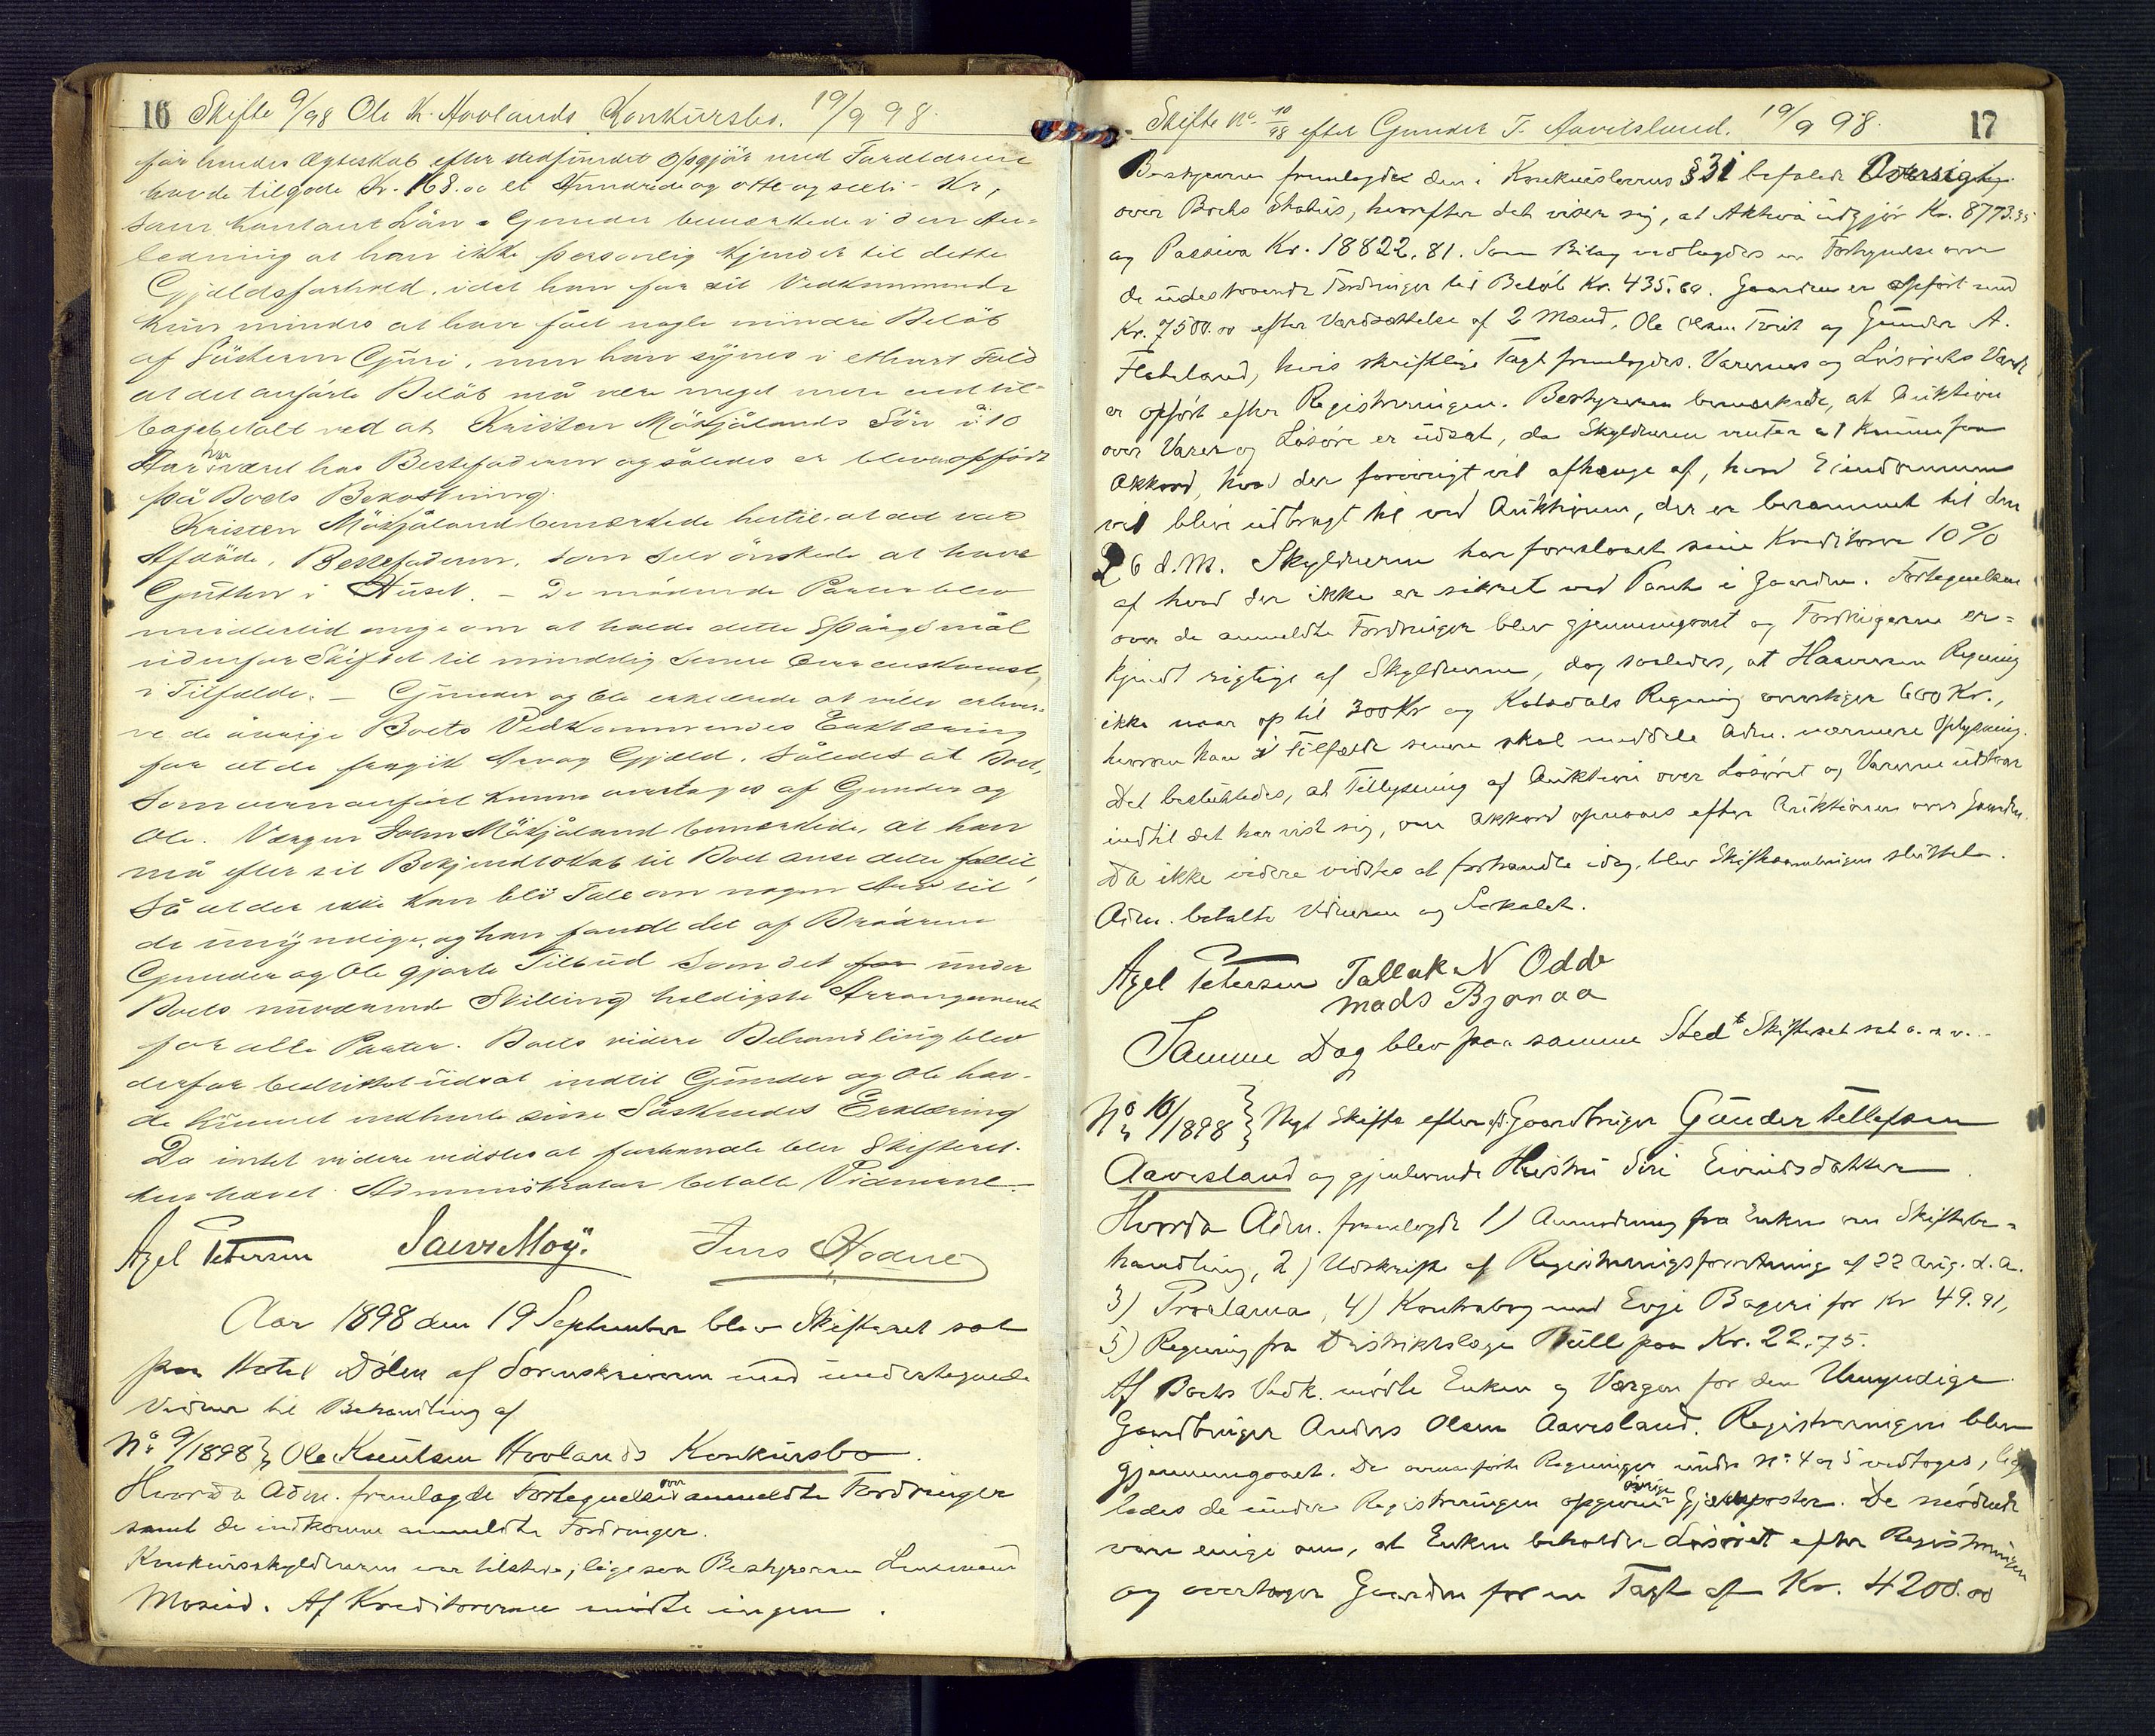 16 Skifte 9/98 Ole K. Hovlands Konkursbo. 19/9 98.
før hendes Ægteskab efter stedfundet Opgjør med Forældrene
havde tilgode Kr. 168.00 et Hundrede og otte og sexti - Kr,
som kontant Lån. Gunder bemærkede i den An-
ledning at han ikke personlig kjender til dette
Gjældsforhold, idet han for sit Vedkommende
kun mindes at have fået nogle mindre Beløb
af Søsteren Guri, men han synes i ethvert Fald
at det anførte Beløb må være meget mere end til-
bagebetalt ved at Kristen Mösfjålands Sön i 10
Aar har været hos Bestefaderen og således er bleven opfødt
på Boets Bekostning.
Kristen Mösfjåland bemærkede hertil at det var
Afdöde, Bestefaderen, som selv önskede at have
Gutten i Huset. - De mödende Parter blev
imidlertid enige om at holde dette Spörgsmål
udenfor Skiftet til mindelig senere Overenskomst,
i Tilfælde. - Gunder og Ole erklærede at ville erhver-
ve de övrige Boets Vedkommendes Erklæring
for at de fragik Arv og Gjæld, således at Boet,
som ovenanført kunne overtages af Gunder og
Ole. Værgen Salve Mösfjåland bemærkede, at han
må efter sit Bekjendtskab til Boet anse dette fallit,
så at der ikke kan bli Tale om nogen Arv til
de umyndige, og han fandt det af Brödrene
Gunder og Ole gjorte Tilbud som det for under
Boets nuværende Stilling heldigste Arrangement
for alle Parter. Boets videre Behandling blev
derfor besluttet udsat indtil Gunder og Ole hav-
de kunnet indhente sine Söskendes Erklæring
Da intet videre vidstes at forhandle blev Skifteret-
ten hævet. Administrator betalte Vidnerne.
Axel Petersen Salve Moÿ. Jens Hodne
Aar 1898 den 19 September blev Skifteret sat
paa Hotel Dölen af Sorenskriveren med undertegnede
Vidner til Behandling af
No 9/1898 } Ole Knutsen Hovlands Konkursbo.
Hvorda Adm. fremlagde Fortegnelse over anmeldte Fordringer
samt de indkomne anmeldte Fordringer.
Konkursskyldneren var tilstede; ligesaa Bestyreren Lensmand
Moseid. Af Kreditorerne mødte ingen.
Skifte No. 10/98 efter Gunder T. Aavesland. 19/9 98. 17
Bestyreren fremlagde den i Konkurslovens § 31 befalede Oversigt
over Boets Status, hvorefter det viser sig, at Aktiva udgjør Kr. 8773.35
og Passiva Kr. 18822.81. Som Bilag vedlagdes en Fortegnelse over
de udestaaende Fordringer til Beløb Kr. 435.60. Gaarden er opført med
Kr. 7500.00 efter Værdsættelse af 2 Mænd, Ole Olsen og Gunder A.
Flateland, hvis skriftlige Taxt fremlagdes. Varernes og Løsørets Værdi
er opført efter Registreringen. Bestyreren bemærkede, at Auktion
over Varer og Løsøre er udsat, da Skyldneren venter at kunne faa
Akkord, hvad der forøvrigt vil afhænge af, hvad Eiendommen
vil blive udbragt til ved Auktionen, der er berammet til den
26 d.M. Skyldneren har foreslaaet sine Kreditorer 10 %
af hvad der ikke er sikret ved Pant i Gaarden. Fortegnelsen
over de anmeldte Fordringer blev gjennemgaaet og Fordringerne er-
kjendt rigtige af Skyldneren, dog saaledes, at Regning
ikke naar op til 300 Kr og Kaladals Regning overstiger 600 Kr.,
hvorom han i Tilfælde senere skal meddele Adm. nærmere Oplysning.
Det besluttedes, at Tillysning af Auktion over Løsøret og Varerne udstaar
indtil det har vist sig, om Akkord opnaaes efter Auktionen over Gaarden.
Da ikke videre vidstes at forhandle idag, blev Skiftesamlingen sluttet.
Adm. betalte Vidnerne og Lokalet.
Axel Petersen Tallak N Odde
Mads Bjoraa
Samme Dag blev paa samme Sted Skifteret sat o. s. v.
No 10/1898 } Nyt Skifte efter afd. Gaardbruger Gunder Tellefsen
Aavesland og gjenlevende Hustru Siri Eivindsdatter
Hvorda Adm. fremlagde 1) Anmodning fra Enken om Skiftebe-
handling, 2) Udskrift af Registreringsforretning af 22 Aug. d. A.
3) Proklama, 4) Kontrabog med Evje Bageri for Kr 49.91,
5) Regning fra Distriktslæge Bull paa Kr. 22.75.
Af Boets Vedk. mødte Enken og Værgen for den Umyndige
Gaardbruger Anders Olsen Aavesland. Registreringen blev
gjennemgaaet. De ovenanførte Regninger under No 4 og 5 vedtoges, lige-
ledes de under Registreringen opgivne øvrige Gjældsposter. De mødende
vare enige om, at Enken beholder Løsøret efter Registreringen
og overtager Gaarden for en Taxt af Kr. 4200.00